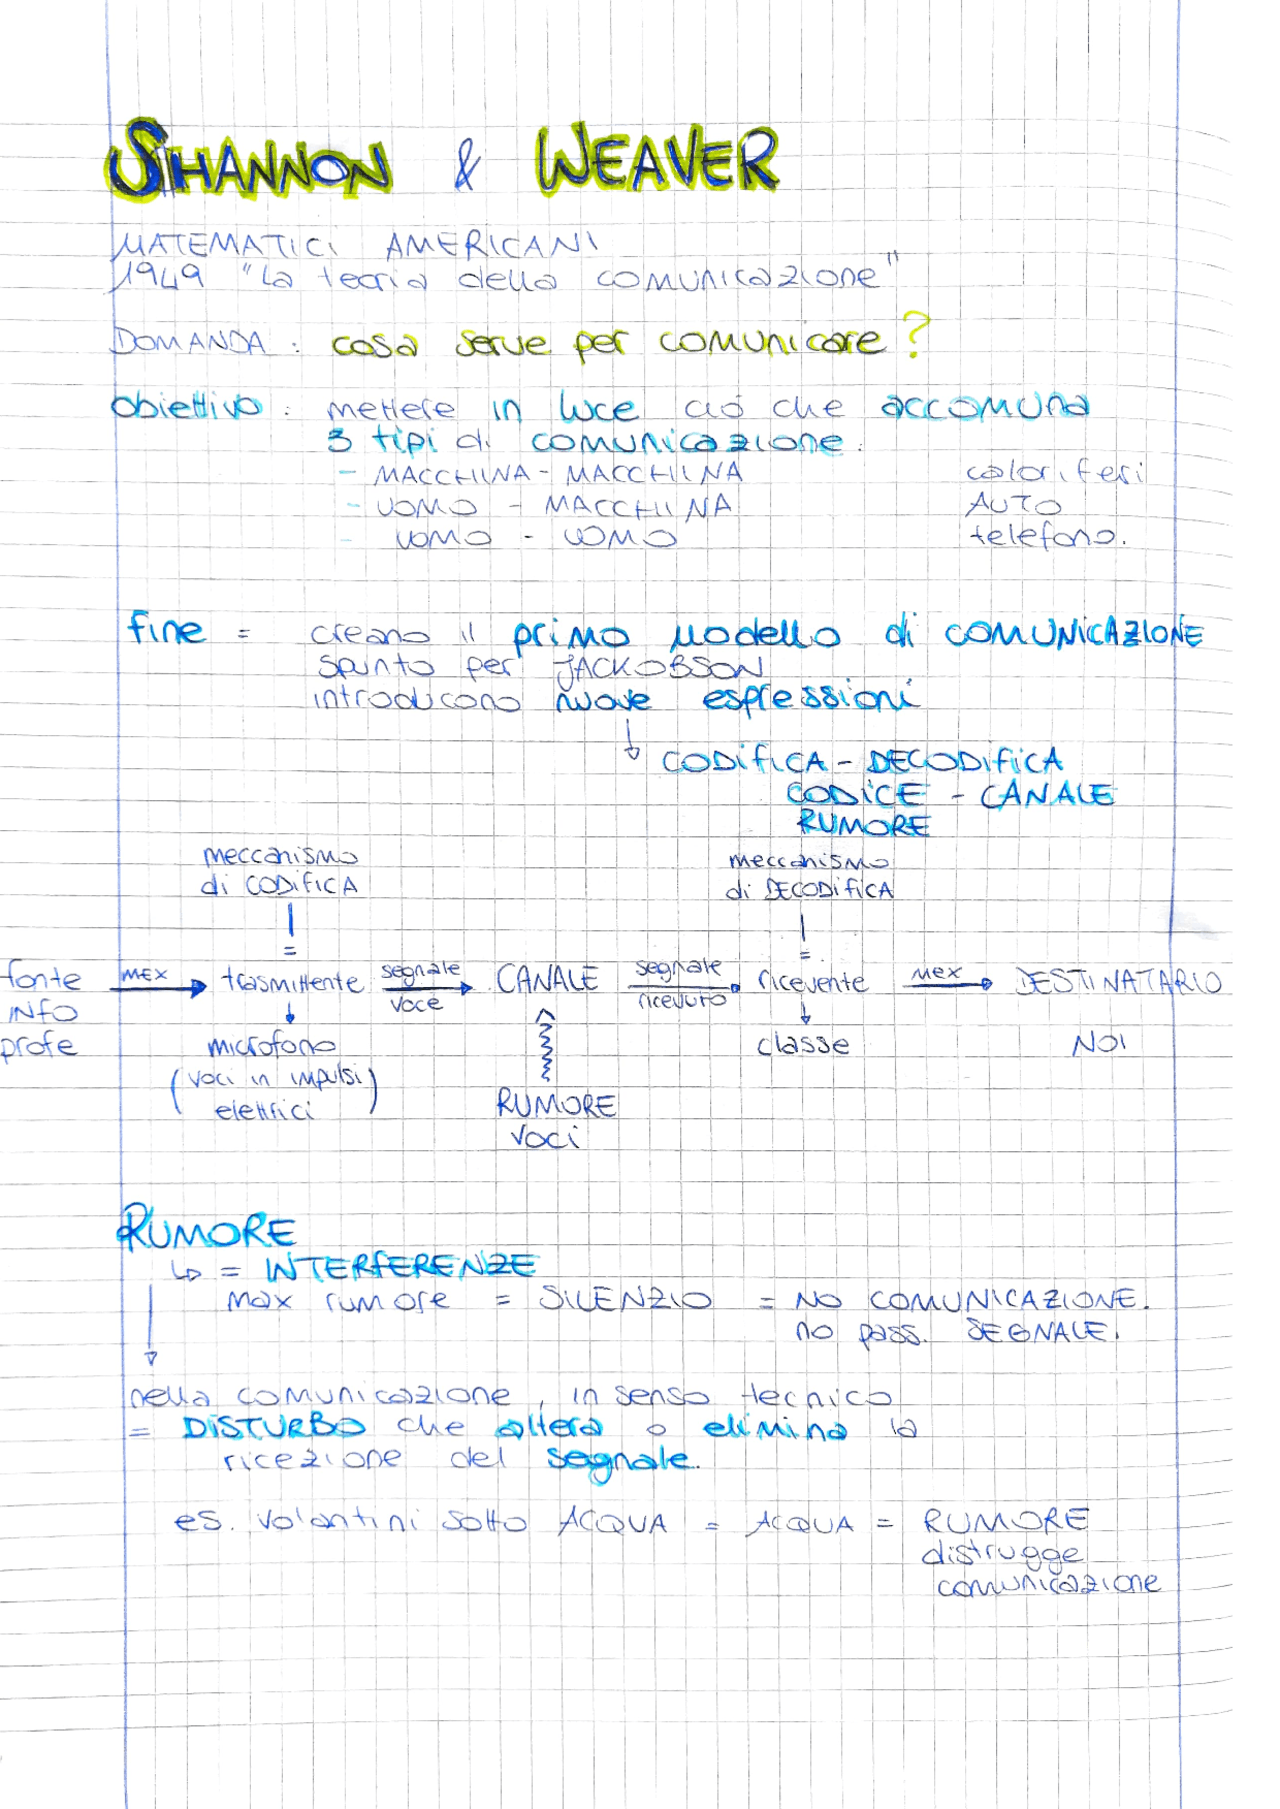 SHANNON & WEAVER
MATEMATICI AMERICANI
1949 "La teoria della comunicazione"
DOMANDA : cosa serve per comunicare ?
Obiettivo : mettere in luce ciò che accomuna
3 tipi di comunicazione.
- MACCHINA - MACCHINA coloriferi
- UOMO - MACCHINA AUTO
- UOMO - UOMO telefono.
fine = creano il primo modello di COMUNICAZIONE
spunto per JACKOBSON
introducono nuove espressioni
CODIFICA - DECODIFICA
CODICE - CANALE
RUMORE
meccanismo meccanismo
di CODIFICA di DECODIFICA
= =
fonte MEX trasmittente segnale CANALE segnale ricevente mex DESTINATARIO
INFO voce ricevuto
profe microfono classe NOI
(voci in impulsi
elettrici)
RUMORE
voci
RUMORE
= INTERFERENZE
max rumore = SILENZIO = NO COMUNICAZIONE.
no pass. SEGNALE.
nella comunicazione, in senso tecnico
= DISTURBO che altera o elimina la
ricezione del segnale.
es. volantini sotto ACQUA = ACQUA = RUMORE
distrugge
comunicazione